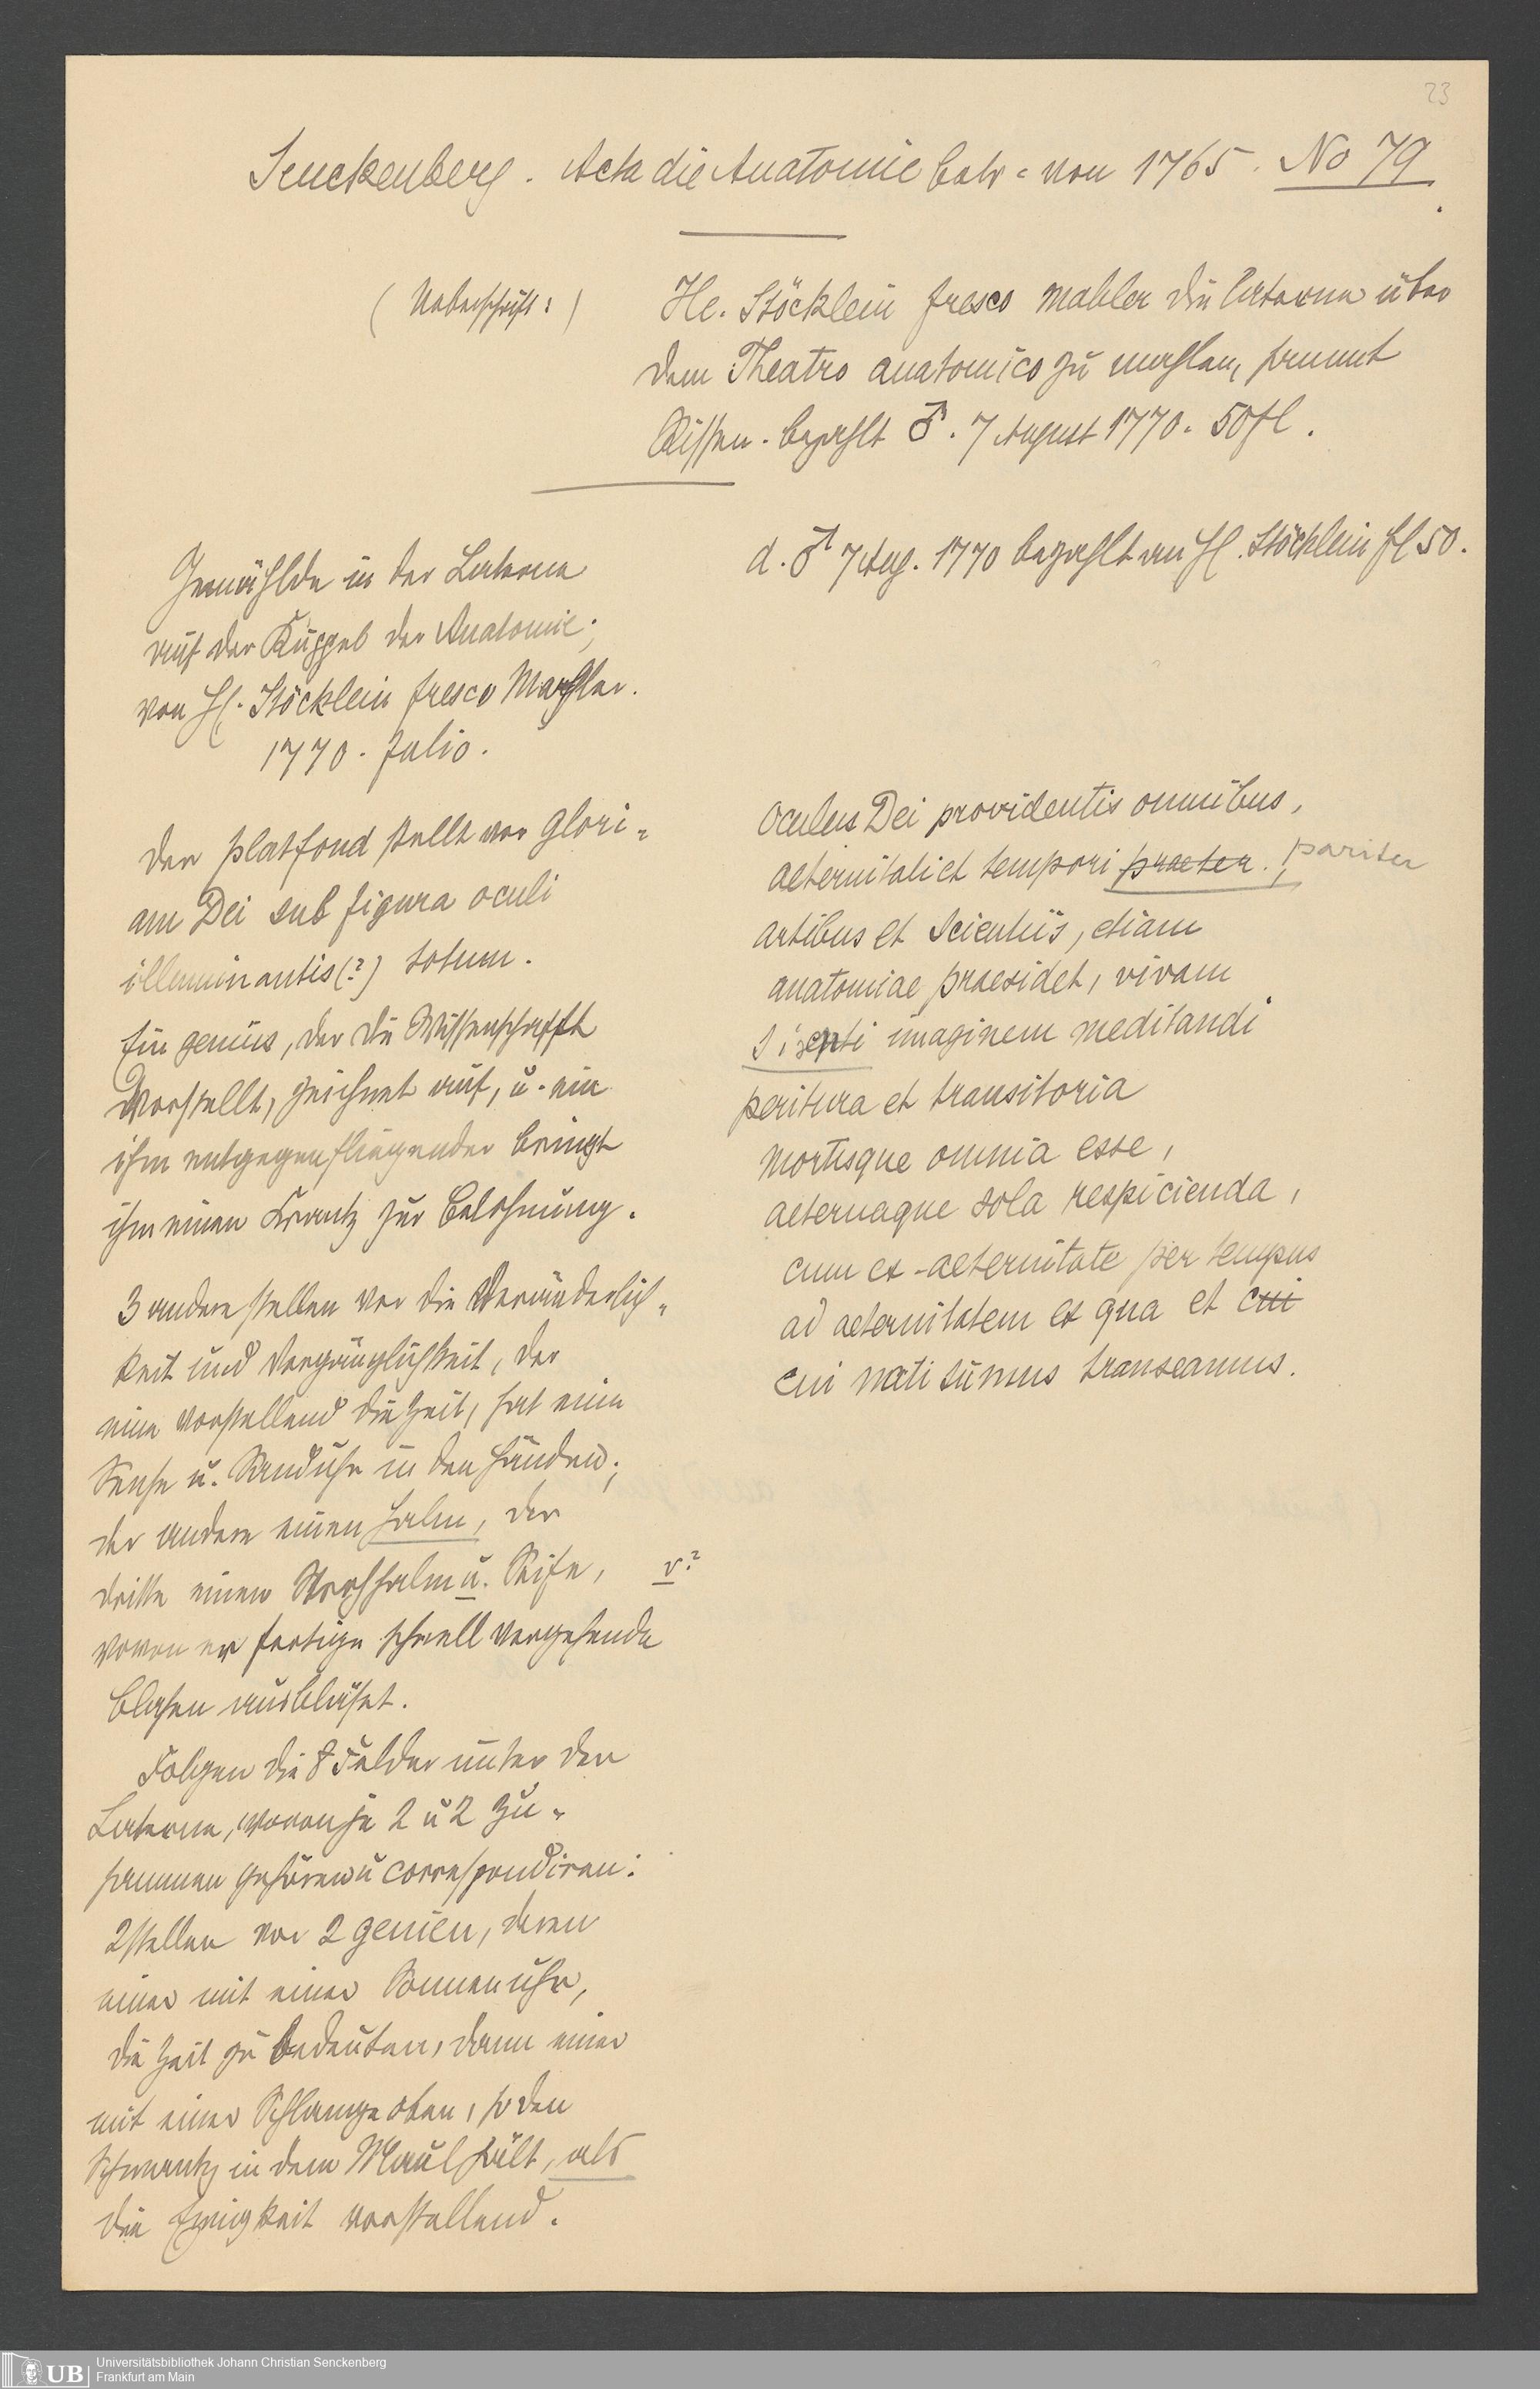 23
Senckenberg. Acta die Anatomie betr. von 1765. No 79
(Ueberschrift:)
He. Stöcklein fresco Mahler die Laterne über
dem Theatro anatomico zu mahlen, sammt
Rissen. bezahlt ♂. 7 August 1770. 50 fl.
Gemählde in der Laterne
auf der Kuppel der Anatomie;
von H. Stöcklein fresco Mahler.
1770. Julio.
Der platfond stellt vor glori-
am Dei sub figura oculi
illuminantis (?) totum.
Ein genius, der die Wissenschafft
Vorstellt, zeichnet auf, u. ein
ihm entgegenfliegender bringt
ihm einen Krantz zur Belohnung.
3 andere stellen vor die Veränderlich-
keit und Vergänglichkeit, der
eine vorstellend die Zeit, hat eine
Sense u. Sanduhr in den Händen;
der andere einen Halm, der
dritte einen Strohhalm u. Seife, v?
wovon er fertige schnell vergehende
Blasen ausbläset.
Folgen die 8 Felder unter der
Laterne, wovon je 2 u 2 zu-
sammen gehören u correspondiren:
2 stellen vor 2 genien, deren
einer mit einer Sonnenuhr,
die Zeit zu bedeuten, dann einer
mit einer Schlange oben, so den
Schwantz in dem Maul hält, als
die Ewigkeit vorstellend.
d. ♂ 7 Aug. 1770 bezahlt an H. Stöcklein fl 50.
Oculus Dei providentis omnibus,
aeternitati et tempori praeter. pariter
artibus et scientiis, etiam
anatomiae praesidet, vivam
sisenti imaginem meditandi
peritura et transitoria
mortisque omnia esse,
aeternaque sola respicienda,
cum ex aeternitate per tempus
ad aeternitatem ex qua et cui
cui nati sumus transeamus.
UB
Universitätsbibliothek Johann Christian Senckenberg
Frankfurt am Main